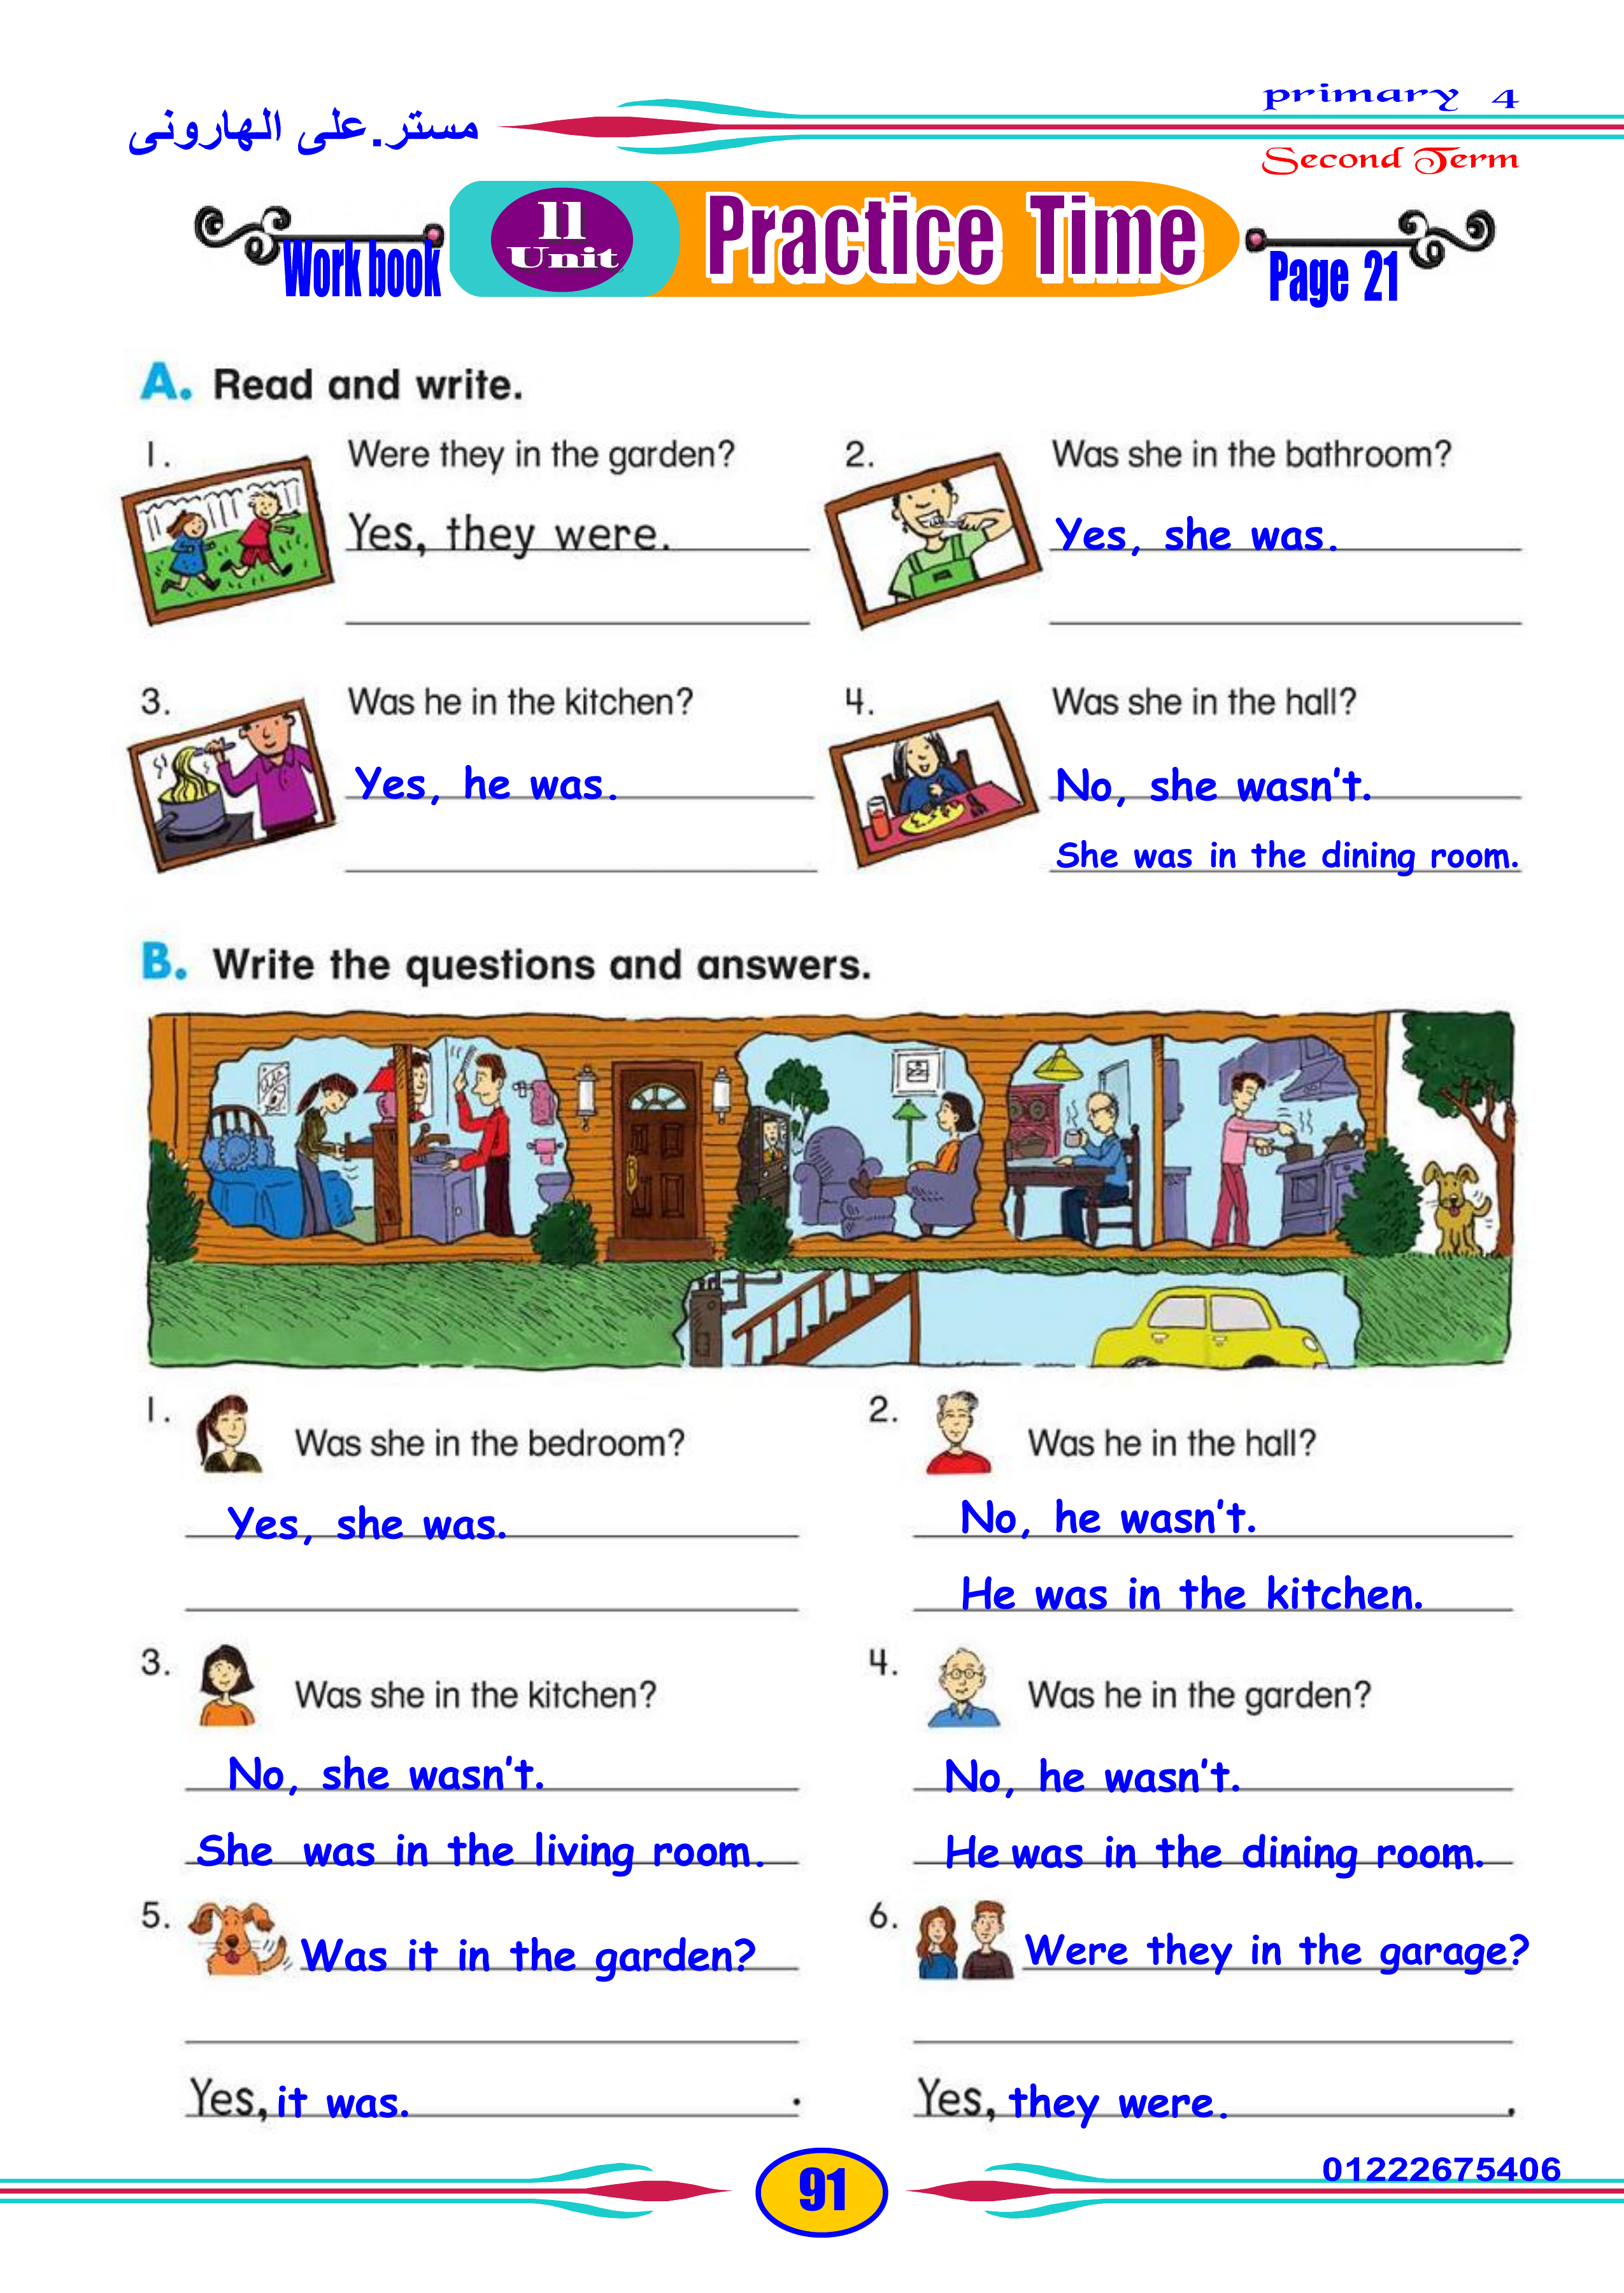 مستر.على الهارونى
primary 4
Second Term
Work book
11
Unit
Practice Time
Page 21
A. Read and write.
1.
Were they in the garden?
Yes, they were.
2.
Was she in the bathroom?
Yes, she was.
3.
Was he in the kitchen?
Yes, he was.
4.
Was she in the hall?
No, she wasn't.
She was in the dining room.
B. Write the questions and answers.
1.
Was she in the bedroom?
Yes, she was.
2.
Was he in the hall?
No, he wasn't.
He was in the kitchen.
3.
Was she in the kitchen?
No, she wasn't.
She was in the living room.
4.
Was he in the garden?
No, he wasn't.
He was in the dining room.
5.
Was it in the garden?
Yes, it was. .
6.
Were they in the garage?
Yes, they were. .
91
01222675406